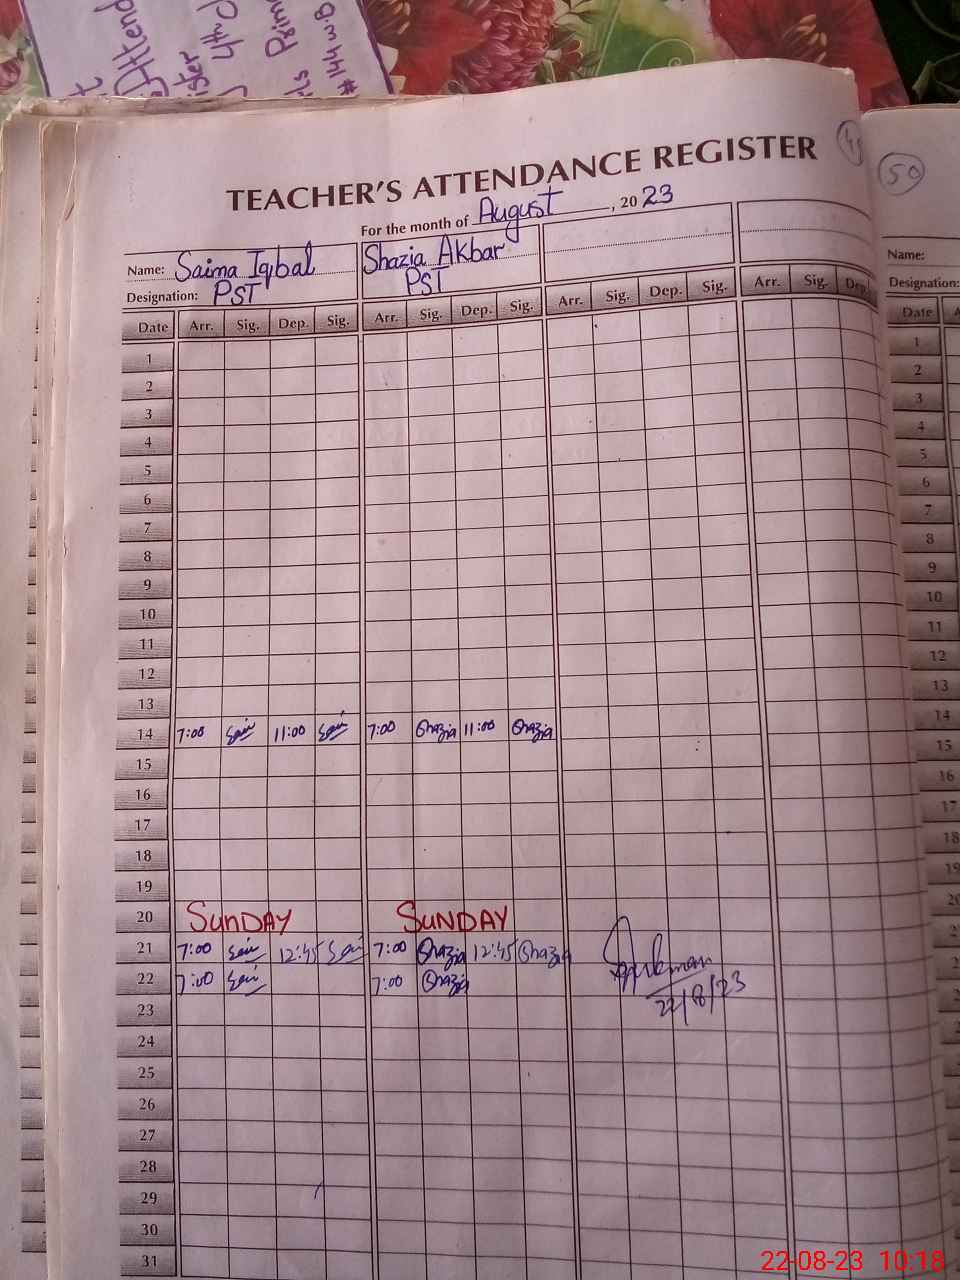 TEACHER'S ATTENDANCE REGISTER
For the month of August, 2023
50
Name: Saima Iqbal Shazia Akbar
Designation: PST PST
Date Arr. Sig. Dep. Sig. Arr. Sig. Dep. Sig. Arr. Sig. Dep. Sig. Arr. Sig. Dep.
1
2
3
4
5
6
7
8
9
10
11
12
13
14 7:00 Sai 11:00 Sai 7:00 Shazia 11:00 Shazia
15
16
17
18
19
20 SUNDAY SUNDAY
21 7:00 Sai 12:45 Sai 7:00 Shazia 12:45 Shazia
22 7:00 Sai 7:00 Shazia
22/8/23
23
24
25
26
27
28
29
30
31
Name:
Designation:
Date
1
2
3
4
5
6
7
8
9
10
11
12
13
14
15
16
17
18
19
20
22-08-23 10:18